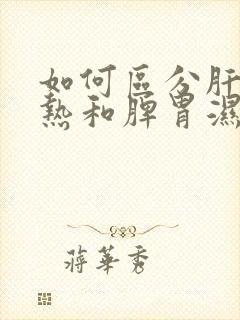 如何區分肝
熱和脾胃濕
蔣華秀